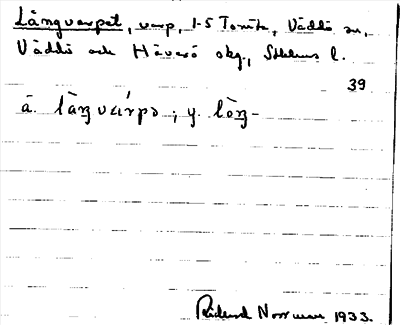 Långvarpet, varp, 1-5 Tomta, Väddö sn,
Väddö och Häverö skg, Sthlms l.
39
ä. làŋvárpə ; y. lòŋ-
Rickard Norrman 1933.